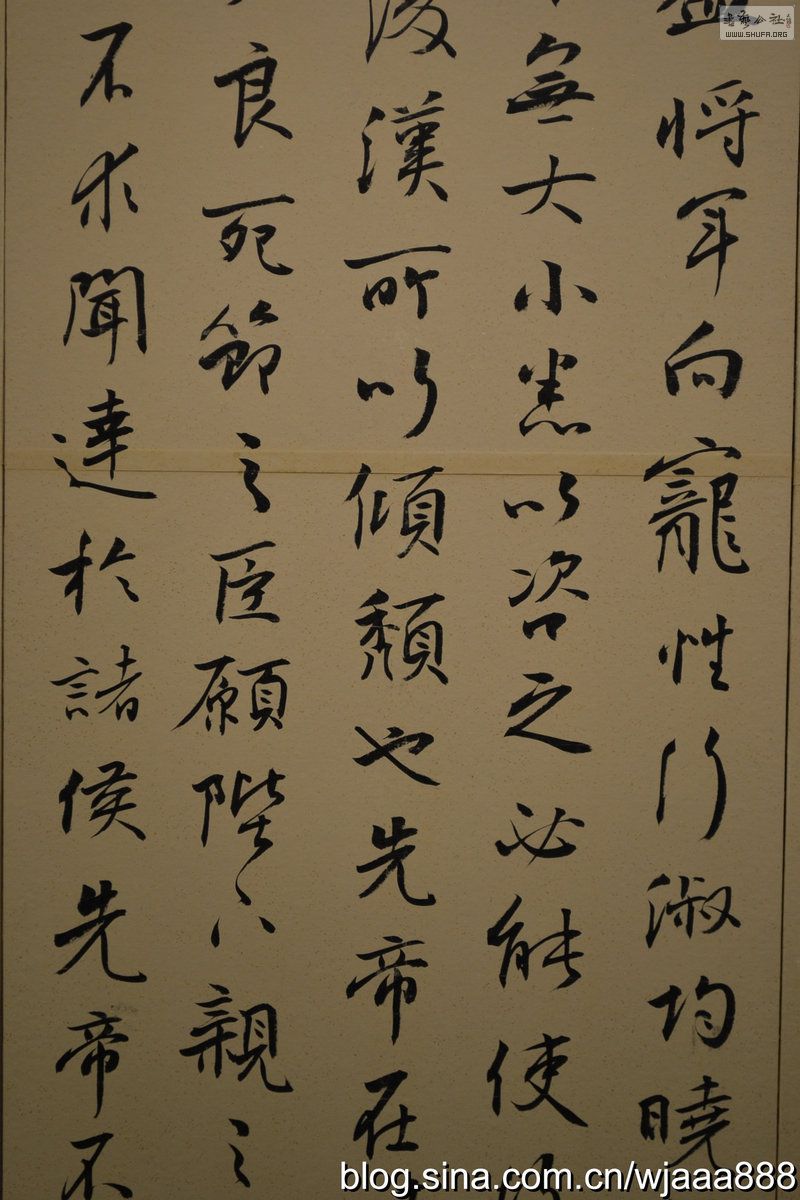 將軍向寵性行淑均曉
無大小悉以咨之必能使
漢所以傾頹也先帝在
良死節之臣願陛下親之
不求聞達於諸侯先帝不
WWW.SHUFA.ORG
blog.sina.com.cn/wjaaa888